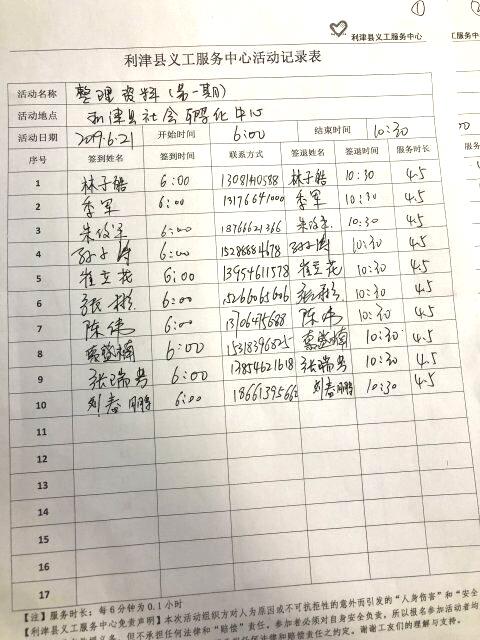 ① ②
利津县义工服务中心
利津县义工服务中心活动记录表
活动名称 整理资料(第一期)
活动地点 利津县社会孵化中心
活动日期 2019.6.21 开始时间 6:00 结束时间 10:30
序号 签到姓名 签到时间 联系方式 签退姓名 签退时间 服务时长
1 林子皓 6:00 林子皓 10:30 4.5
2 季军 6:00 季军 10:30 4.5
3 6:00 18766621366 10:30 4.5
4 6:00 10:30 4.5
5 崔立花 6:00 13954611578 崔立花 10:30 4.5
6 张彬 6:00 15266065606 张彬 10:30 4.5
7 陈伟 6:00 陈伟 10:30 4.5
8 6:00 15318396825 10:30 4.5
9 张瑞芳 6:00 13854621618 张瑞芳 10:30 4.5
10 刘春鹏 6:00 刘春鹏 10:30 4.5
11
12
13
14
15
16
17
【注】服务时长:每6分钟为0.1小时
【利津县义工服务中心免责声明】本次活动组织方对人为原因或不可抗拒性的意外而引发的“人身伤害”和“安全
但不承担任何法律和“赔偿”责任。参加者必须对自身安全负责。所以报名参加活动者均
担任何法律和赔偿责任之约定。谢谢工友们的理解与支持。